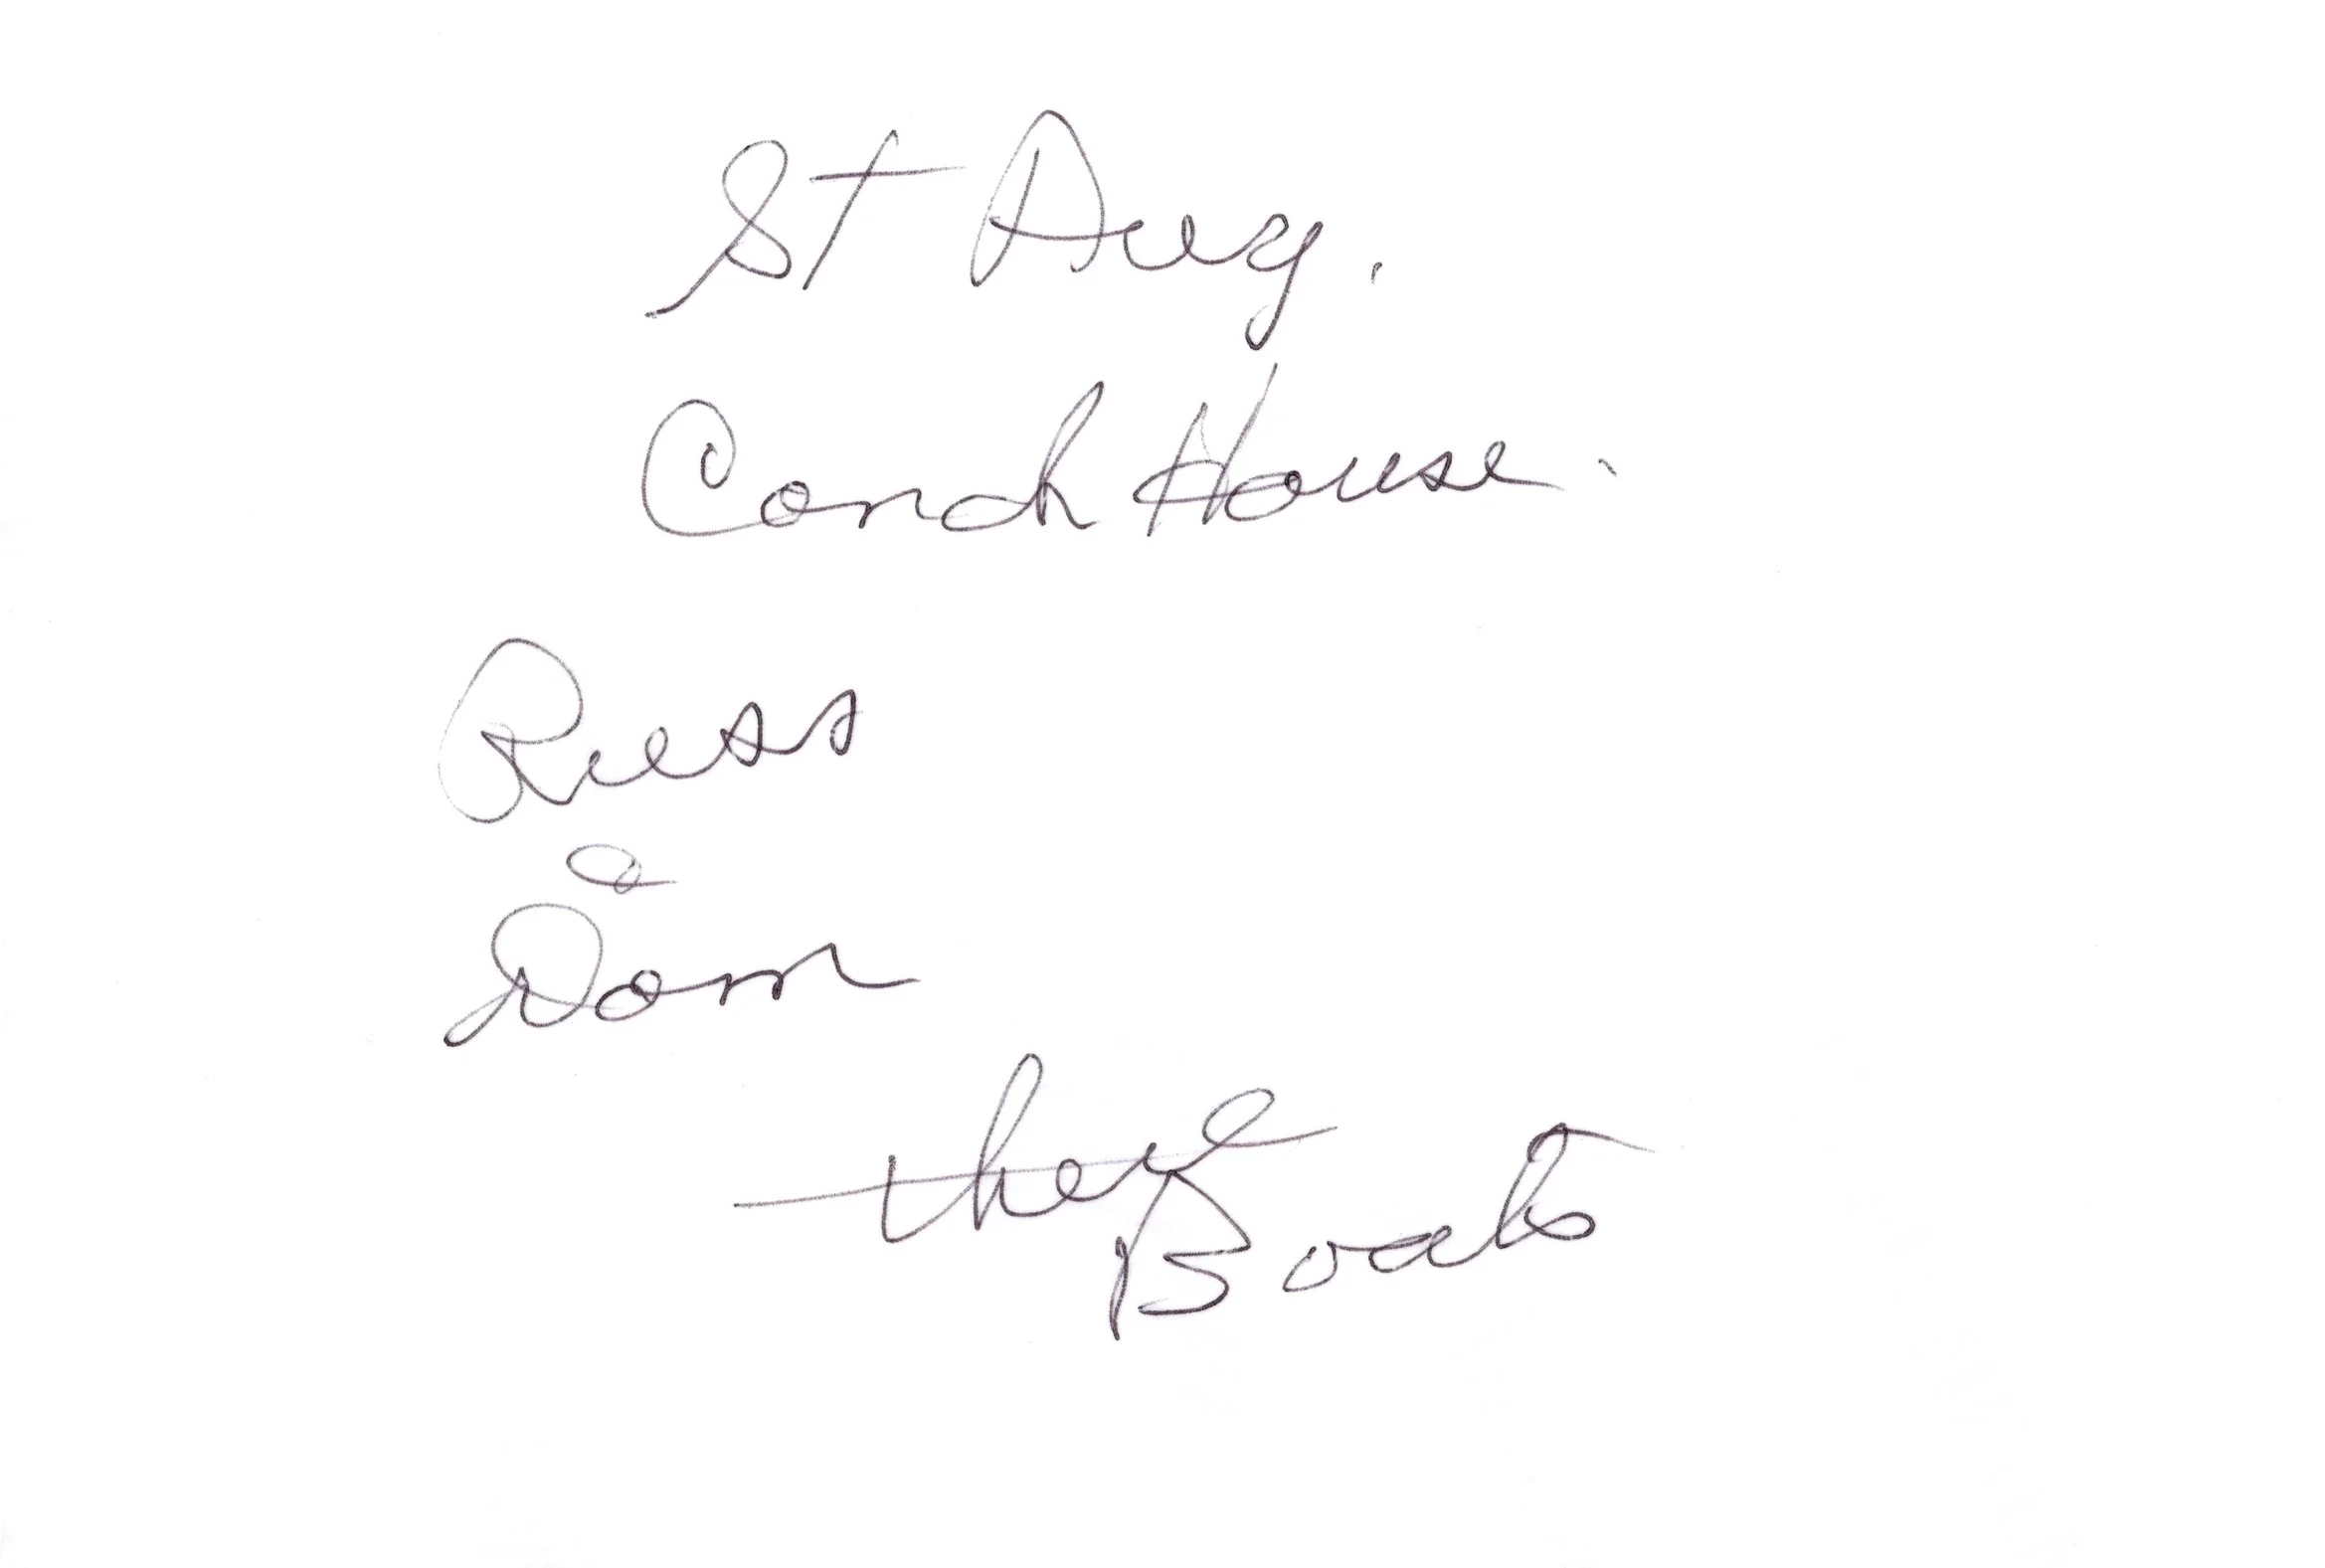 St Aug.
Conch House.
Russ
&
Dom
their
Boats